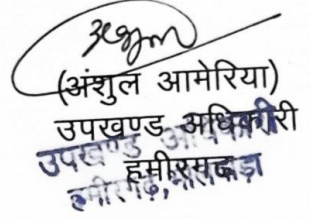 (अंशुल आमेरिया)
उपखण्ड अधिकारी
हमीरगढ़
उपखण्ड अधिकारी
हमीरगढ़, भीलवाड़ा